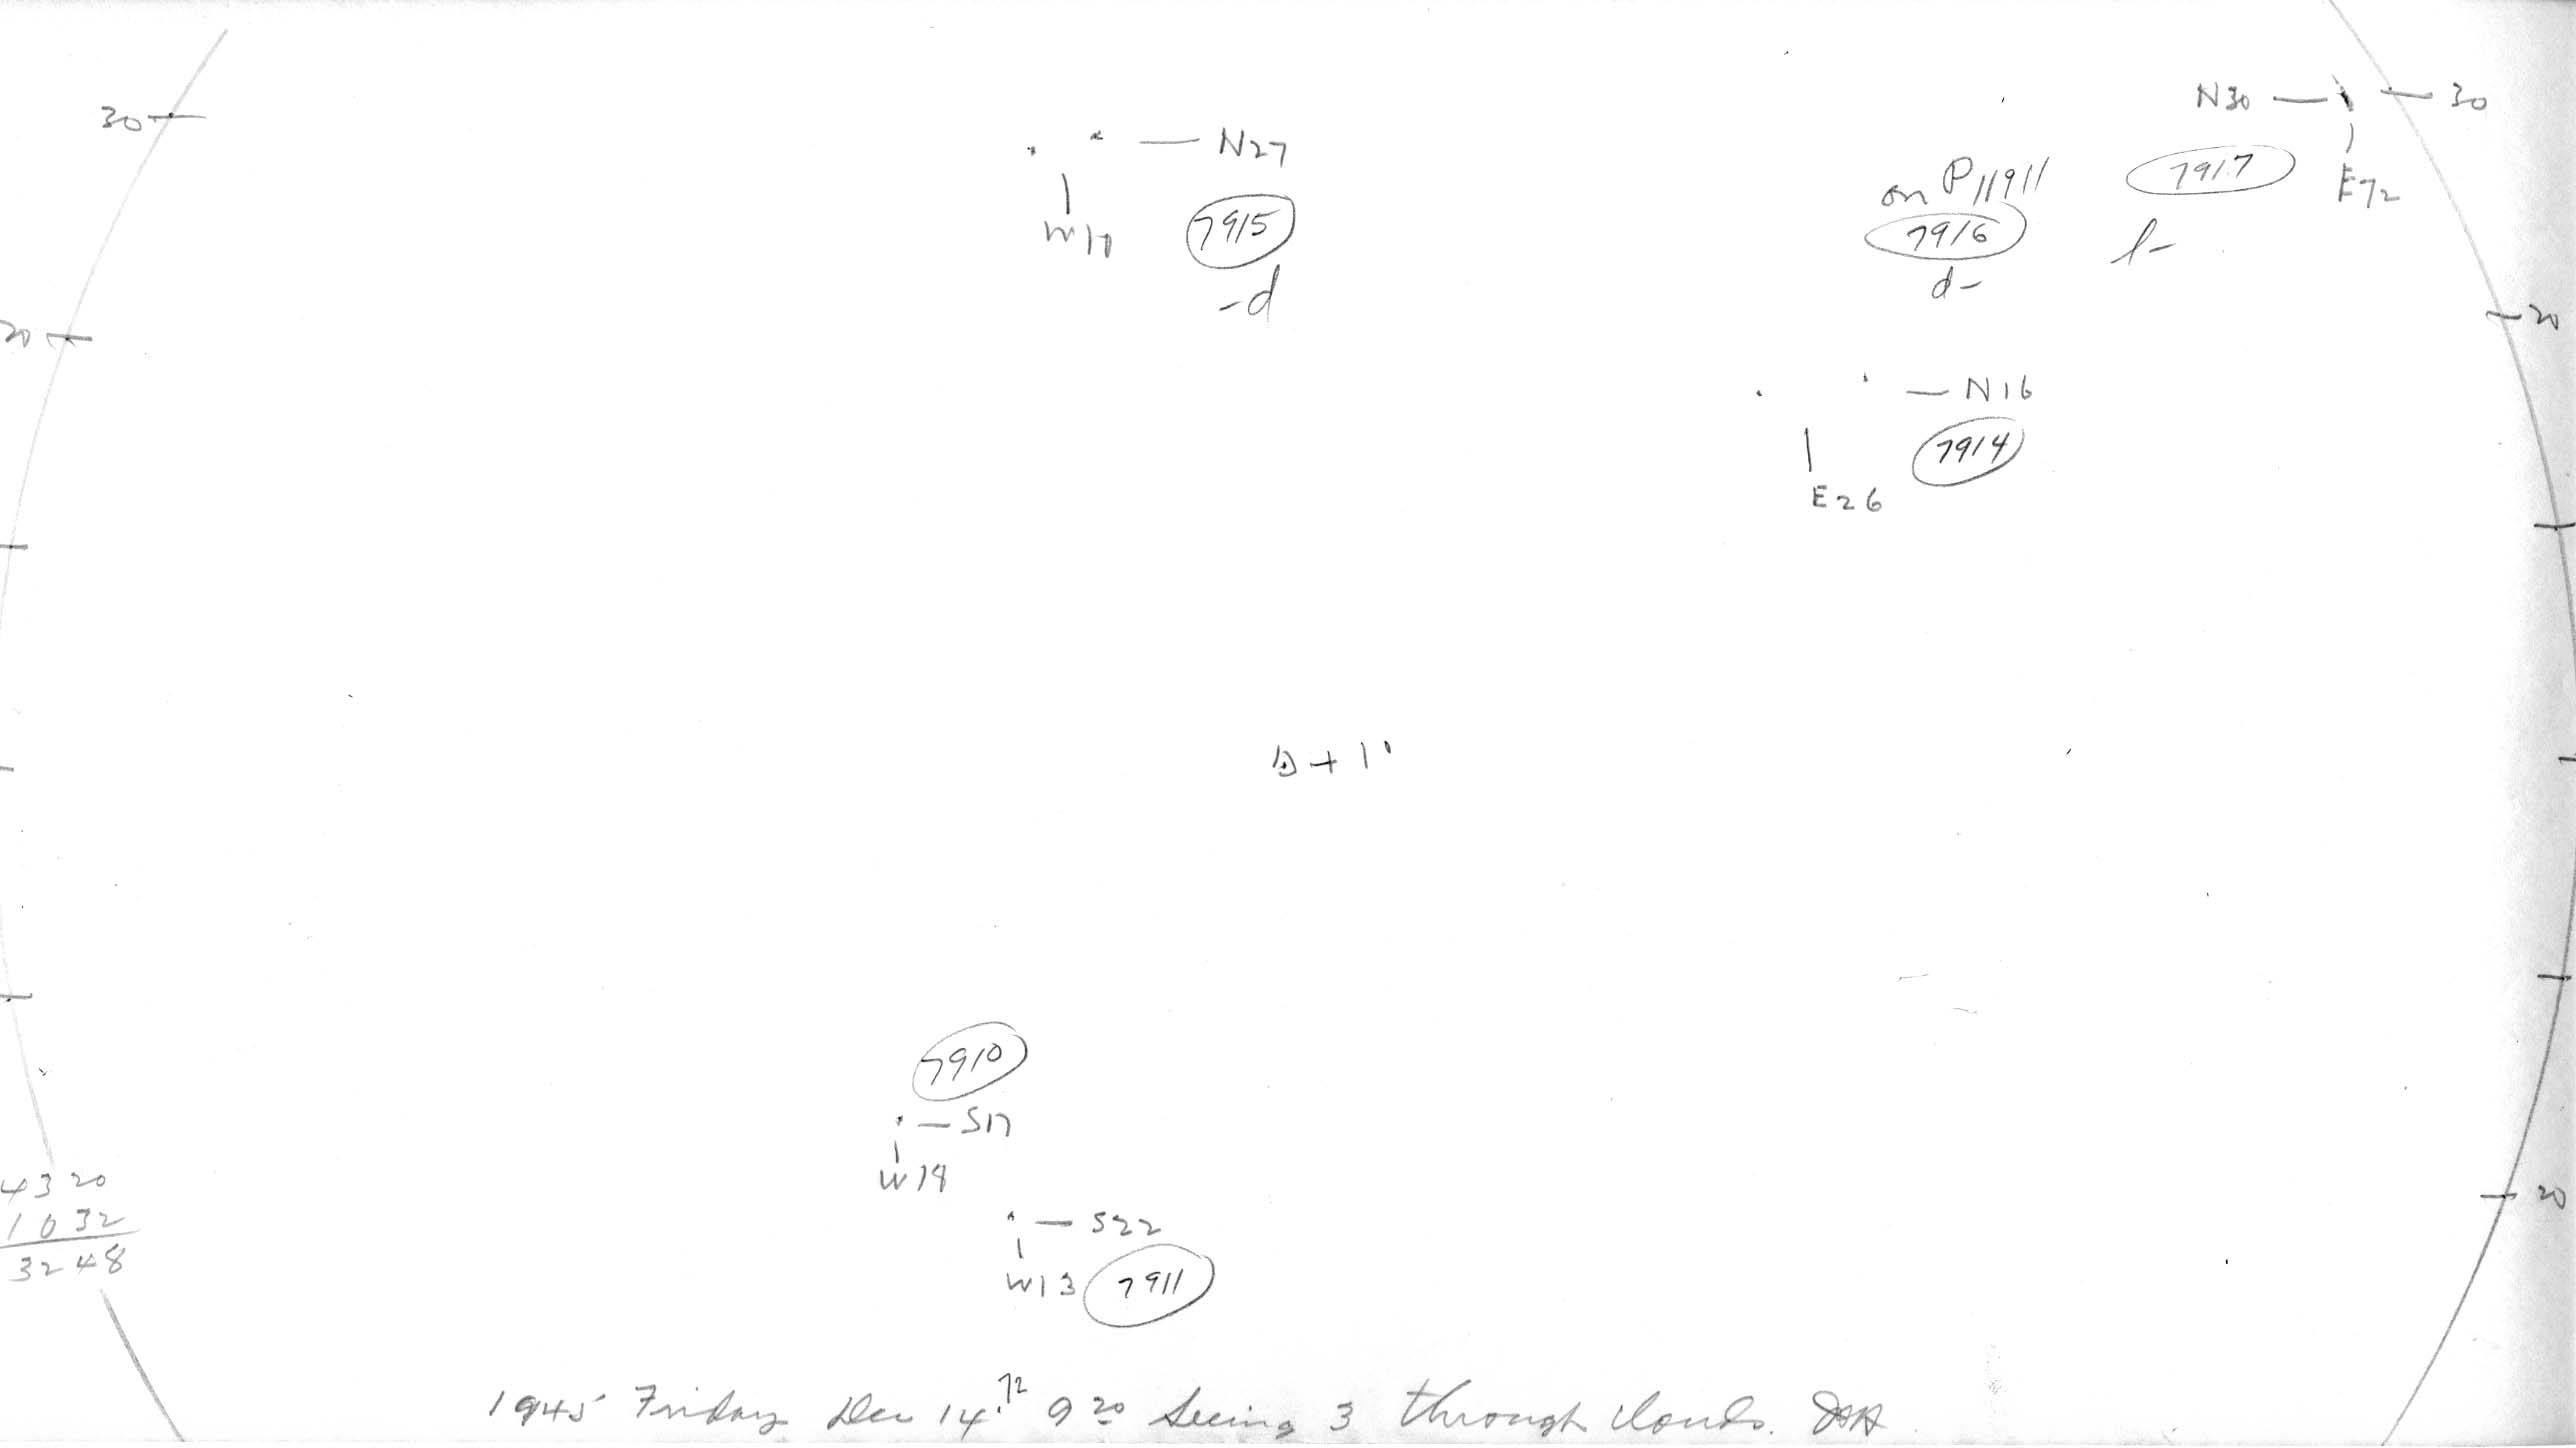 N30 — — 30
30 —
— N27
on P11911
7917
E72
W10
7915
7916
l-
d-
-d
20 —
— 20
— N16
7914
E26
+ 1°
7910
— S17
W18
4320
1032
3248
— 20
— S22
W13 7911
1945 Friday Dec 14.72 9 20 Seeing 3 through clouds.